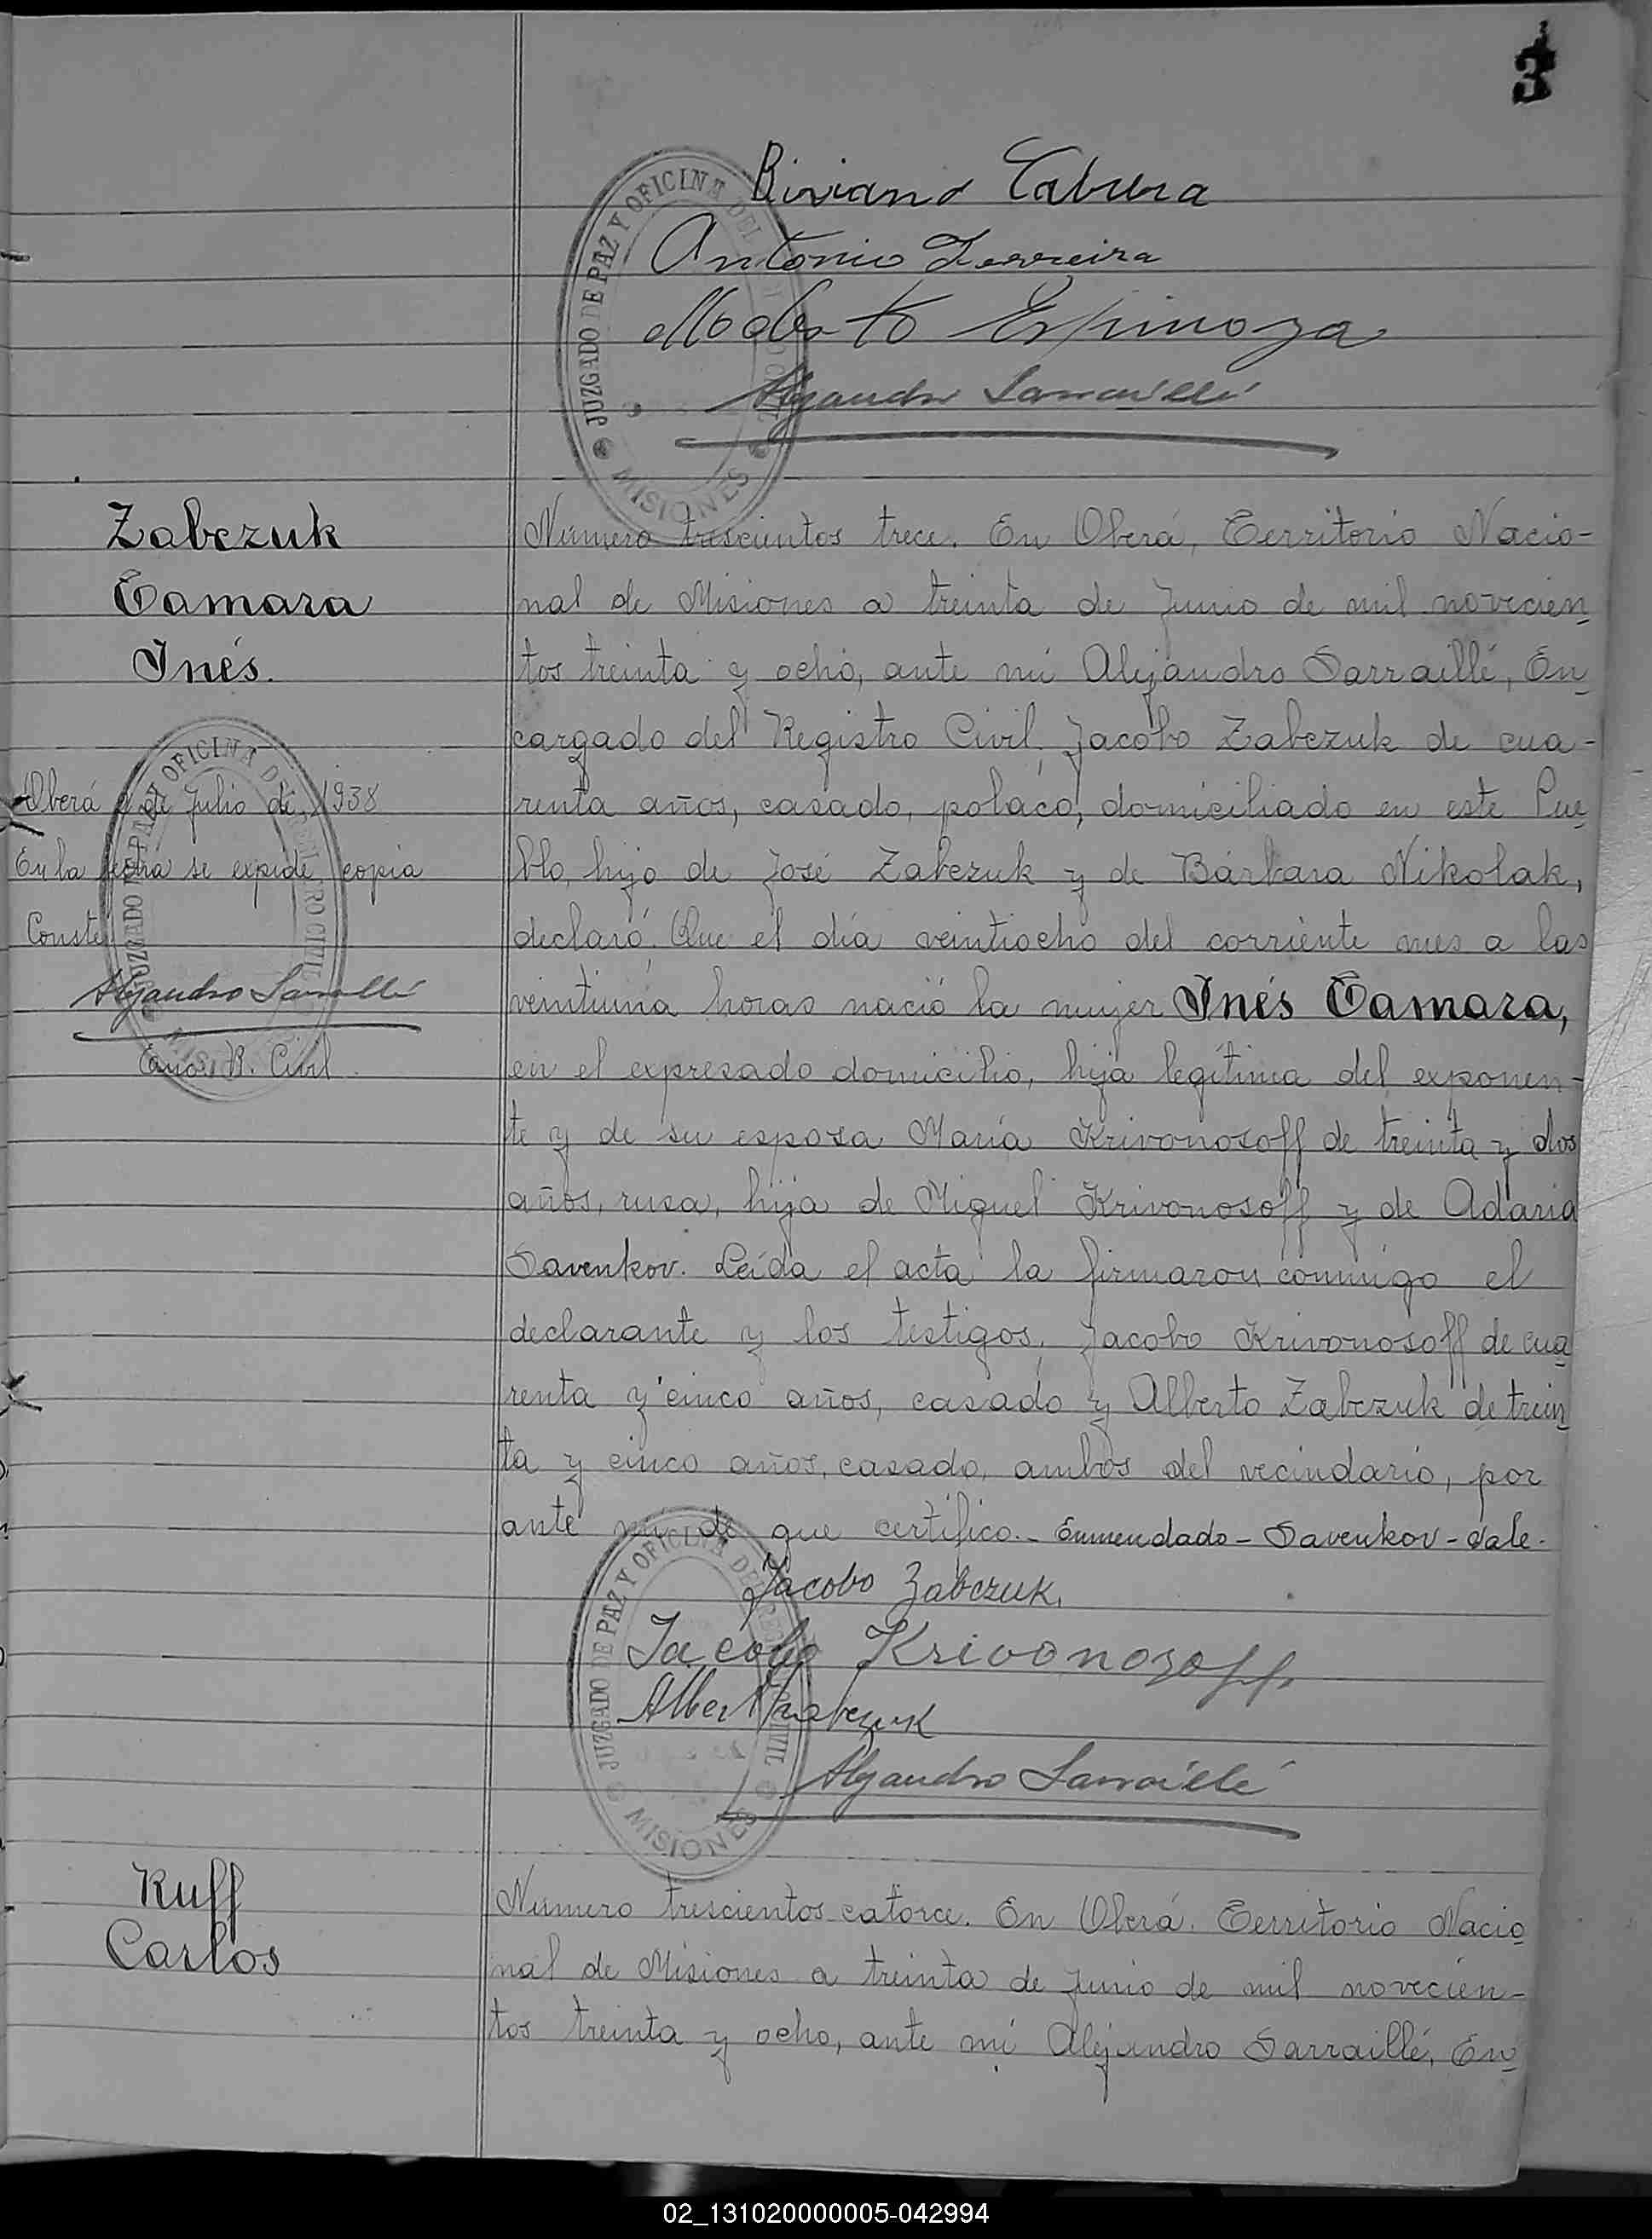 3
Biviano Cabrera
Antonio Ferreira
Modesto Espinoza
Alejandro Sarraillé
JUZGADO DE PAZ Y OFICINA DEL
MISIONES
Zabczuk
Tamara
Inés.
Número trescientos trece. En Oberá, Territorio Nacio-
nal de Misiones a treinta de Junio de mil novecien
tos treinta y ocho, ante mí Alejandro Sarraillé, En
cargado del Registro Civil, Jacobo Zabczuk de cua-
renta años, casado, polaco, domiciliado en este Pue
blo, hijo de José Zabczuk y de Bárbara Nikolak,
declaró: Que el día veintiocho del corriente mes a las
veintiuna horas nació la mujer Inés Tamara,
en el expresado domicilio, hija legítima del exponen-
te y de su esposa María Krivonosoff de treinta y dos
años, rusa, hija de Miguel Krivonosoff y de Adaria
Savenkov. Leída el acta la firmaron conmigo el
declarante y los testigos, Jacobo Krivonosoff de cua
renta y cinco años, casado y Alberto Zabczuk de trein
ta y cinco años, casado, ambos del vecindario, por
ante mí de que certifico.- Enmendado - Savenkov - Vale.
Oberá de Julio de 1938
En la fecha se expide copia
Conste
Alejandro Sarraillé
R. Civil
JUZGADO DE PAZ Y OFICINA DEL REGISTRO CIVIL
MISIONES
Jacobo Zabczuk.
Jacobo Krivonozoff.
Albert Zabczuk
Alejandro Sarraillé
JUZGADO DE PAZ Y OFICINA DEL REGISTRO CIVIL
MISIONES
Ruff
Carlos
Número trescientos catorce. En Oberá. Territorio Nacio
nal de Misiones a treinta de Junio de mil novecien-
tos treinta y ocho, ante mí Alejandro Sarraillé, En
02_131020000005-042994